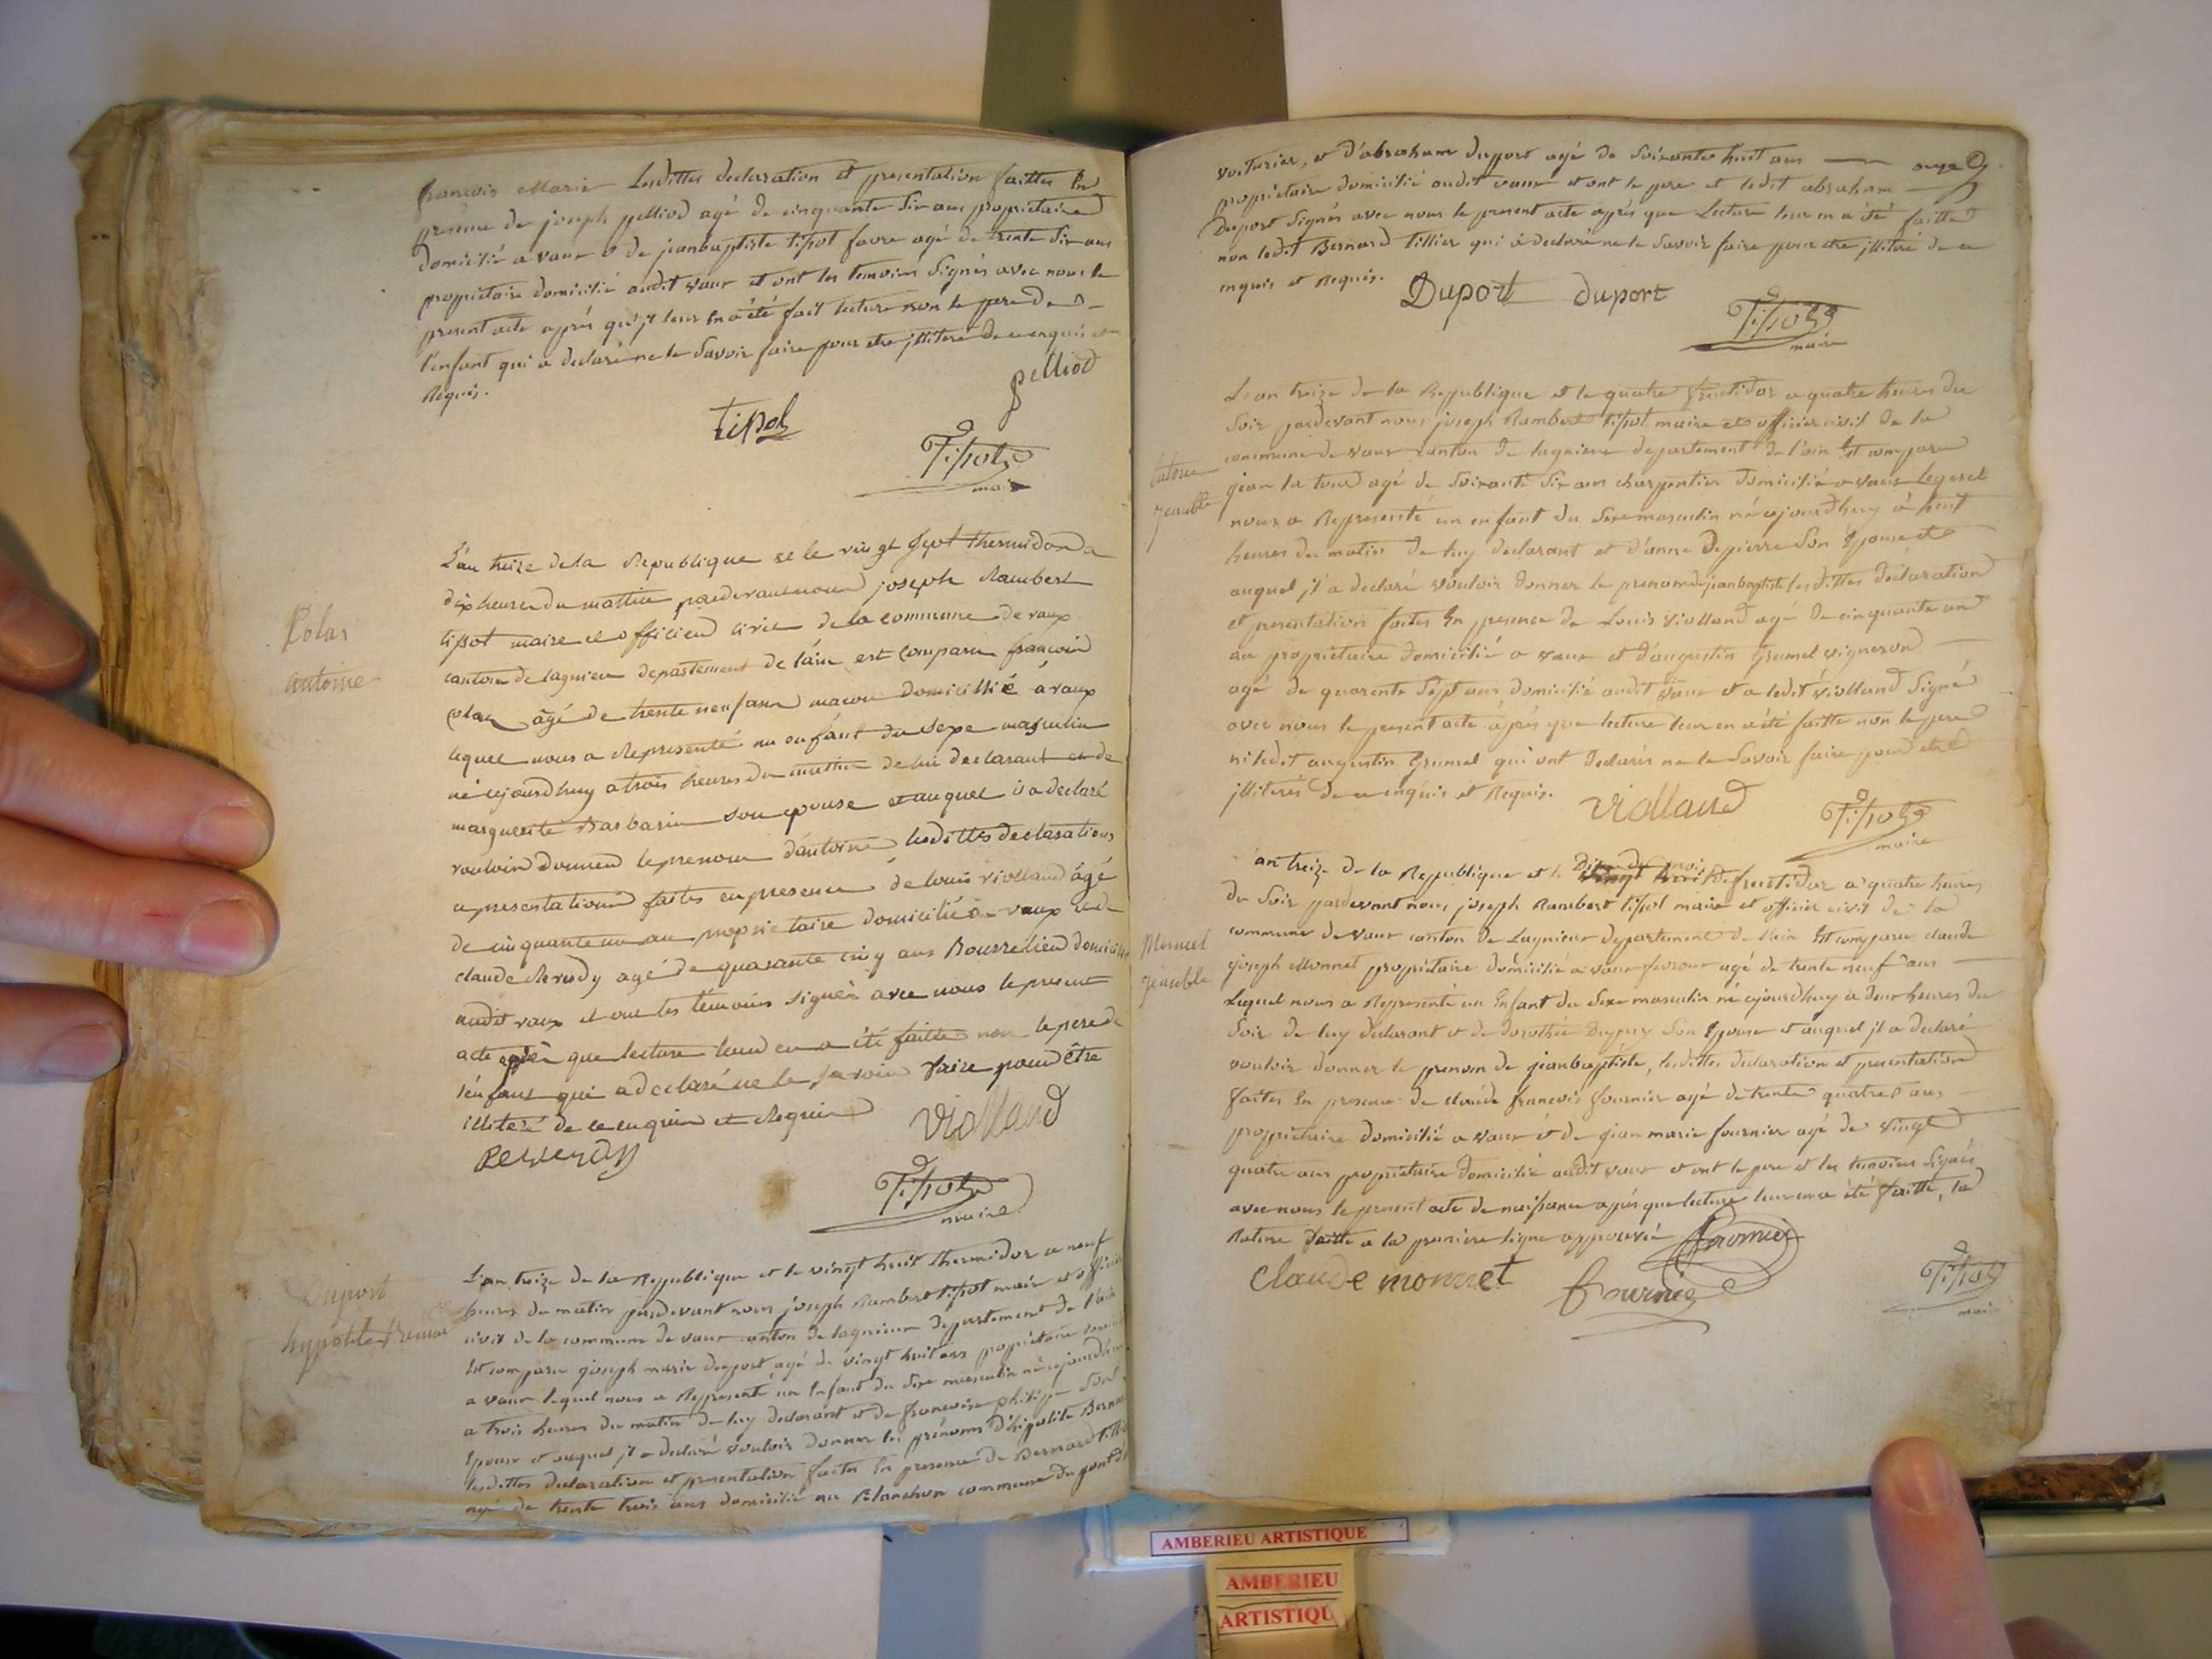 françois Marie Lesdittes declaration et presentation faittes En
presence de joseph pelliod agé de cinquante six ans propriétaire
domicilié a vaux & de jeanbaptiste tissot favre agé de trente six ans
propriétaire domicilié audit vaux et ont les temoins signés avec nous le
present acte après qu'jl leur En a été fait lecture non le pere de
l'enfant qui a declaré ne le savoir faire pour etre jlliteré de ce enquis et
Requis.
pelliod
tissot
Tissot
maire
Polar
antoine
L'an treize de la Republique et le vingt sept thermidor a
dix heures du mattin pardevant nous joseph Rambert
tissot maire et officier civil de la commune de vaux
canton de lagnieu departement de l'ain est comparu françois
polar âgé de trente neuf ans macon domicillié à vaux
lequel nous a Representé un enfant du sexe masculin
né cejourdhuy a trois heures du mattin de lui declarant et de
marguerite Barbarin son epouse et auquel il a declaré
vouloir donner le prenom d'antoine lesdittes declarations
et presentations faites en presence de louis violland âgé
de cinquante un an proprietaire domicilié a vaux et de
claude Reverdy agé de quarante cinq ans Bourrelier domicilié
audit vaux et ont les témoins signés avec nous le present
acte après que lecture leur en a été faitte non le pere de
l'enfant qui a declaré ne le savoir faire pour être
illiteré de ce enquis et Requis
violland
Reverdy
Tissot
maire
Duport
hypolite Bernard
L'an treize de la Republique et le vingt huit thermidor a neuf
heures du matin pardevant nous joseph Rambert tissot maire et officier
civil de la commune de vaux canton de lagnieux departement de l'ain
Est comparu joseph marie duport agé de vingt huit ans propriétaire
a vaux lequel nous a Representé un Enfant du sexe masculin né cejourdhuy
a trois heures du matin de luy declarant et de francoise philippe son
Epouse et auquel jl a declaré vouloir donner les prénoms d'hipolite Bernard
lesdittes declaration et presentation faites En presence de Bernard tillier
agé de trente trois ans domicilié au Blanchon commune du pont d'
voiturier, et d'abraham duport agé de soixante huit ans
propriétaire domicilié audit vaux et ont le pere et ledit abraham
Duport signés avec nous le present acte après que Lecture leur en a été faitte
non ledit Bernard tillier qui a declaré ne le savoir faire pour etre jlliteré de ce
enquis et Requis.
Duport duport
Tissot
maire
L'an treize de la Republique et le quatre fructidor a quatre heures du
soir pardevant nous joseph Rambert tissot maire et officier civil de la
commune de vaux canton de lagnieux departement de l'ain Est comparu
jean la tour agé de soixante six ans charpentier domicilié a vaux Lequel
nous a Representé un enfant du sexe masculin né cejourdhuy à huit
heures du matin de luy declarant et d'anne Depierre son Epouse et
auquel jl a declaré vouloir donner le prenom de jeanbaptiste lesdittes déclaration
et presentation faites En presence de Louis violland agé de cinquante un
an propriétaire domicilié a vaux et d'augustin Grumel vigneron
agé de quarente sept ans domicilié audit vaux et a ledit violland signé
avec nous le present acte après que lecture leur en a été faitte non le pere
ni ledit augustin Grumel qui ont declarés ne le savoir faire pour etre
jlliterés de ce enquis et Requis.
violland
Tissot
maire
Monnet
jeanb.te
L'an treize de la Republique et le dix du mois de fructidor a quatre heures
du soir pardevant nous joseph Rambert tissot maire et officier civil de la
commune de vaux canton de Lagnieux departement de l'ain Est comparu claude
joseph Monnet propriétaire domicilié a vaux agé de trente neuf ans
Lequel nous a Representé un Enfant du sexe masculin né cejourdhuy a deux heures du
soir de luy declarant et de dorothée son Epouse et auquel jl a declaré
vouloir donner le prenom de jeanbaptiste, lesdittes declaration et presentation
faites En presence de claude françois fournier agé de trente quatre ans
propriétaire domicilié a vaux et de jean marie fournier agé de vingt
quatre ans propriétaire domicilié audit vaux et ont le pere et les temoins signés
avec nous le present acte de naissance après que lecture leur en a été faitte, la
Rature faitte a la première ligne approuvée
fournier
claude monnet
fournier
Tissot
maire
AMBERIEU ARTISTIQUE
AMBERIEU
ARTISTIQU